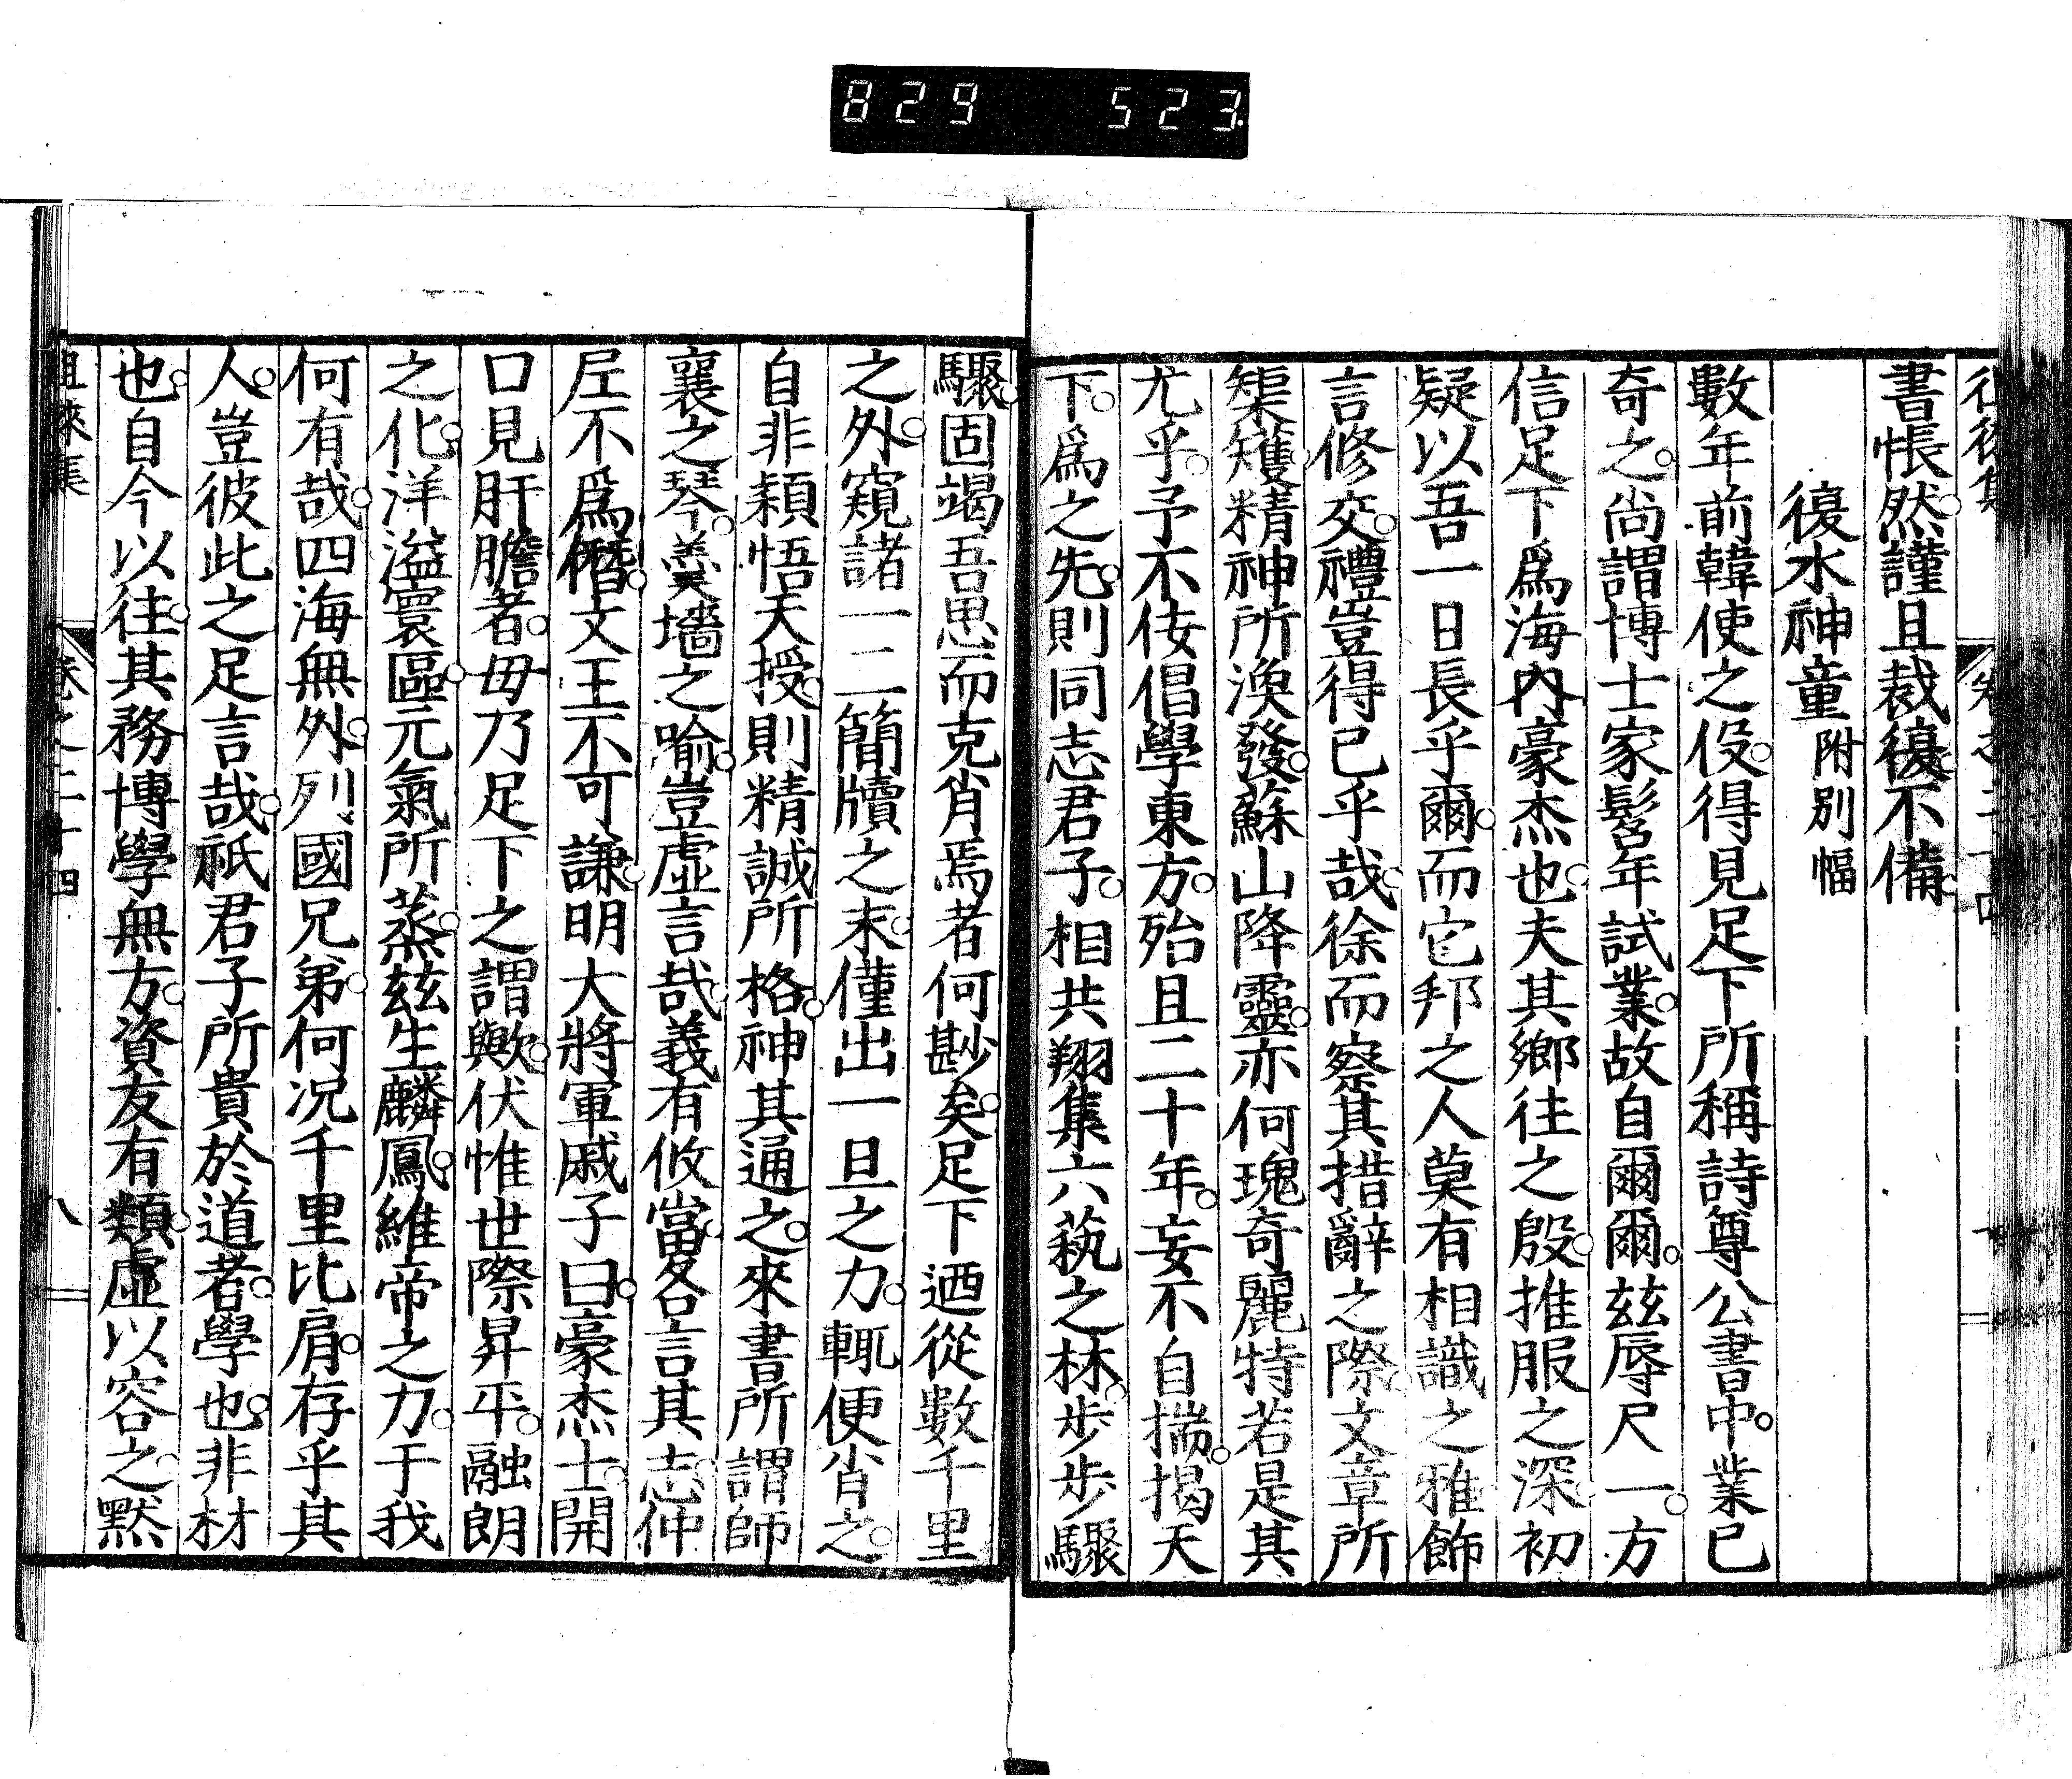 829 523
書悵然。謹且裁復不備。
復水神童附別幅
數年前韓使之役。得見足下所稱詩尊公書中。業已
奇之。尚謂博士家髫年試業。故自爾爾。玆辱尺一。方
信足下爲海內豪杰也。夫其鄉往之殷。推服之深。初
疑以吾一日長乎爾。而它邦之人莫有相識之雅。飾
言修交。禮豈得已乎哉。徐而察其措辭之際。文章所
榘矱。精神所渙發。蘇山降靈。亦何瑰奇麗特若是其
尤乎。予不佞倡學東方。殆且二十年。妄不自揣。揭天
下。爲之先。則同志君子。相共翔集六蓺之林。步步驟
驟。固竭吾思而克肖焉者何尠矣。足下迺從數千里
之外。窺諸一二簡牘之末。僅出一旦之力。輒便肖之。
自非穎悟天授。則精誠所格。神其通之。來書所謂師
襄之琴。羹墻之喻。豈虛言哉。義有攸當。畧言其志。仲
尼不爲僭。文王不可謙。明大將軍戚子曰。豪杰士。開
口見肝膽者。毋乃足下之謂歟。伏惟世際昇平。融朗
之化。洋溢寰區。元氣所蒸。玆生麟鳳。維帝之力。于我
何有哉。四海無外。列國兄弟。何况千里比肩。存乎其
人。豈彼此之足言哉。祇君子所貴於道者。學也。非材
也。自今以往。其務博學無方。資友有類。虛以容之。黙
徂徠集 卷之二十四 八